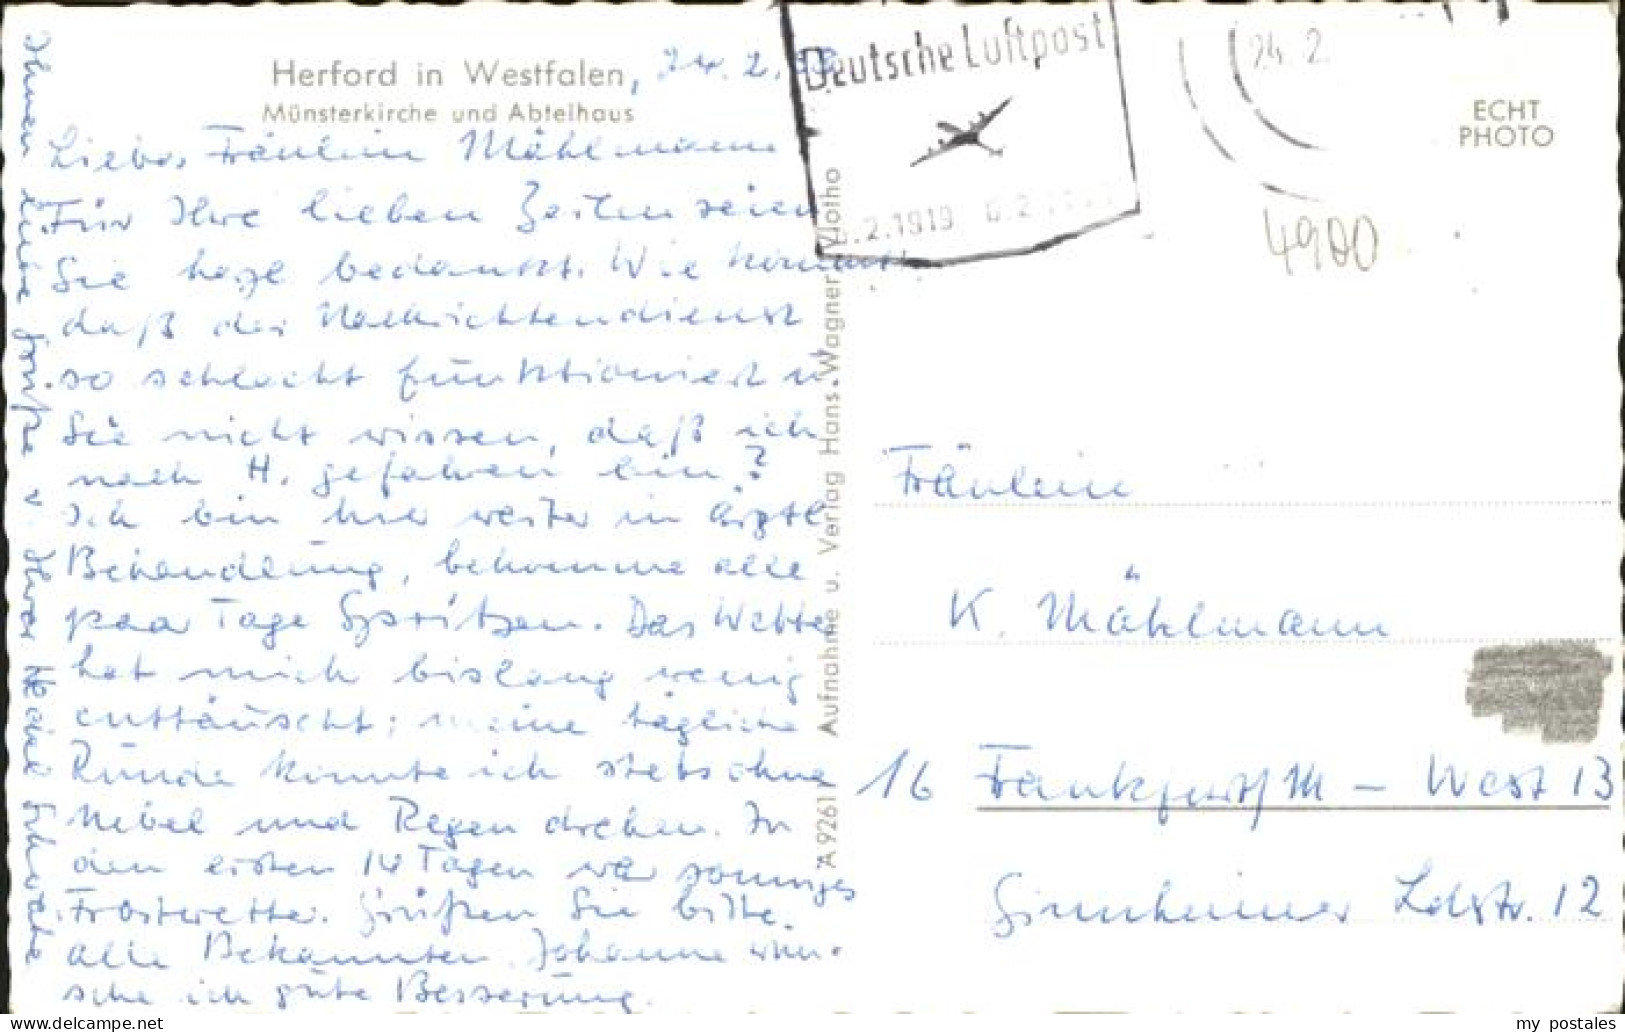 Herford in Westfalen, 24. 2.
Münsterkirche und Abteihaus
Liebes Fräulein Mählmann
Für Ihre lieben Zeilen seien
Sie herzl bedankt. Wie kommt's
daß der Nachrichtendienst
so schlecht funktioniert u.
Sie nicht wissen, daß ich
nach H. gefahren bin?
Ich bin hier weiter in ärztl
Behandlung, bekomme alle
paar Tage Spritzen. Das Wetter
hat mich bislang wenig
enttäuscht; meine tägliche
Runde konnte ich stets ohne
Nebel und Regen drehen. In
den ersten 14 Tagen war sonniges
Frostwetter. Grüßen Sie bitte
alle Bekannten. Johanne wün-
sche ich gute Besserung.
Ihnen liebe Grüße v. Ihrer
A 9261 Aufnahme u. Verlag Hans Wagner, Vlotho
Deutsche Luftpost
.2.1919 6.2
24. 2.
ECHT
PHOTO
4900
Fräulein
K. Mählmann
16 Frankfurt/M – West 13
Ginnheimer Ldstr. 12
my postales